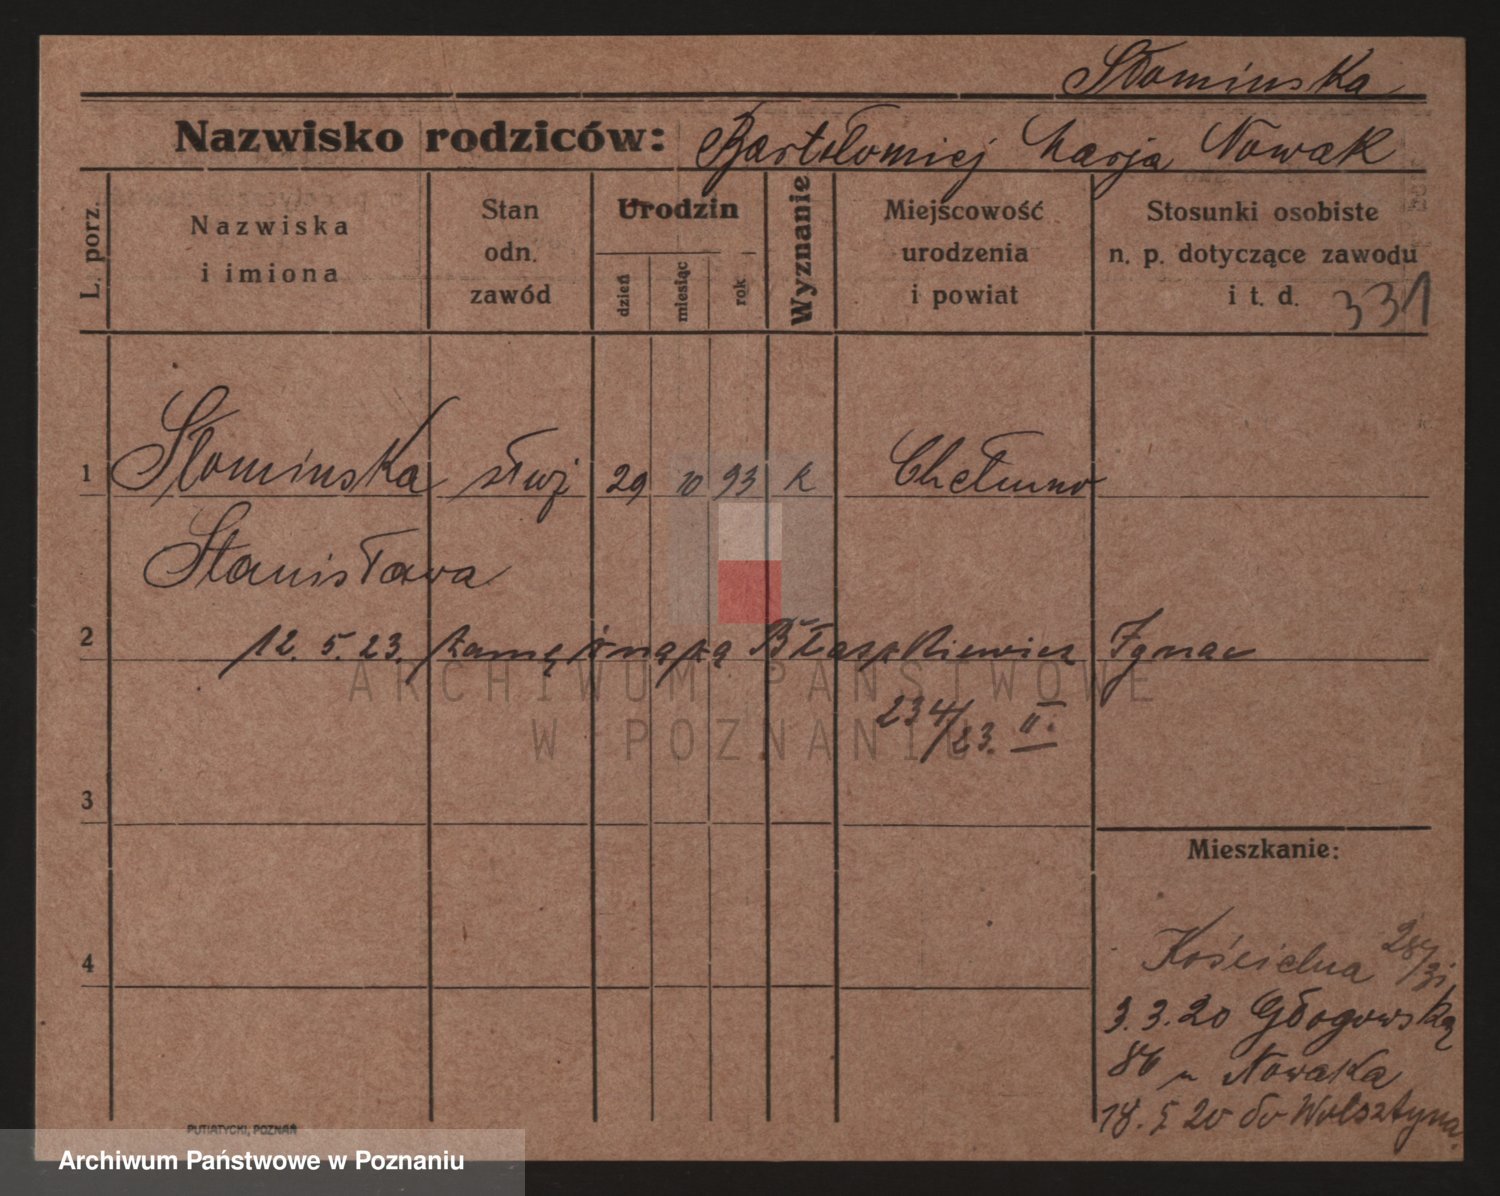 Słominska
Nazwisko rodziców: Bartołomiej Marja Nowak
L. porz.
Nazwiska
i imiona
Stan
odn.
zawód
Urodzin
dzień
miesiąc
rok
Wyznanie
Miejscowość
urodzenia
i powiat
Stosunki osobiste
n. p. dotyczące zawodu
i t. d.
331
1 Słominska służ 29 10 93 k Chełmno
Stanisława
2 12. 5. 23. zamężną za Błaszkiewicz Ignac
234/23. II.
ARCHIWUM PAŃSTWOWE
W POZNANIU
3
Mieszkanie:
4
Kościelna
3. 3. 20 Głogowską
86 u Nowaka
18. 5 20 do Wolsztyna.
PUTIATYCKI, POZNAŃ
Archiwum Państwowe w Poznaniu